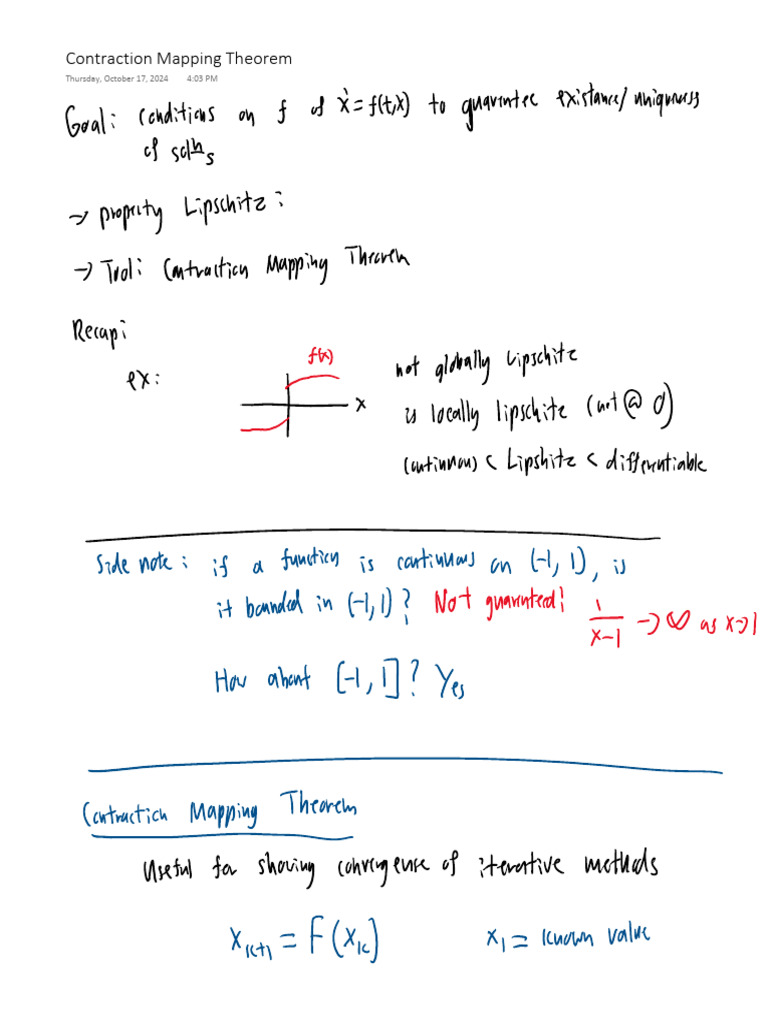 Contraction Mapping Theorem
Thursday, October 17, 2024 4:03 PM
Goal: Conditions on f of ẋ = f(t,x) to guarantee existance/uniqueness
of solⁿs
→ property Lipschitz:
→ Tool: Contraction Mapping Theorem
Recap:
ex:
f(x)
x
not globally Lipschitz
is locally lipschitz (not @ 0)
continuous < Lipshitz < differentiable
Side note: if a function is continuous on (-1, 1), is
it bounded in (-1, 1)? Not guaranteed! 1/(x-1) → ∞ as x→1
How about [-1, 1]? Yes
Contraction Mapping Theorem
Useful for showing convergence of iterative methods
x_{k+1} = F(x_k) x_1 = known value